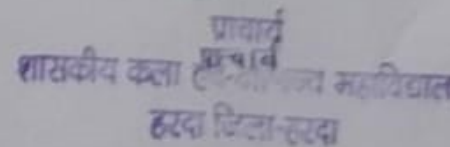 प्राचार्य
प्राचार्य
शासकीय कला महाविद्याल
हरदा जिला-हरदा